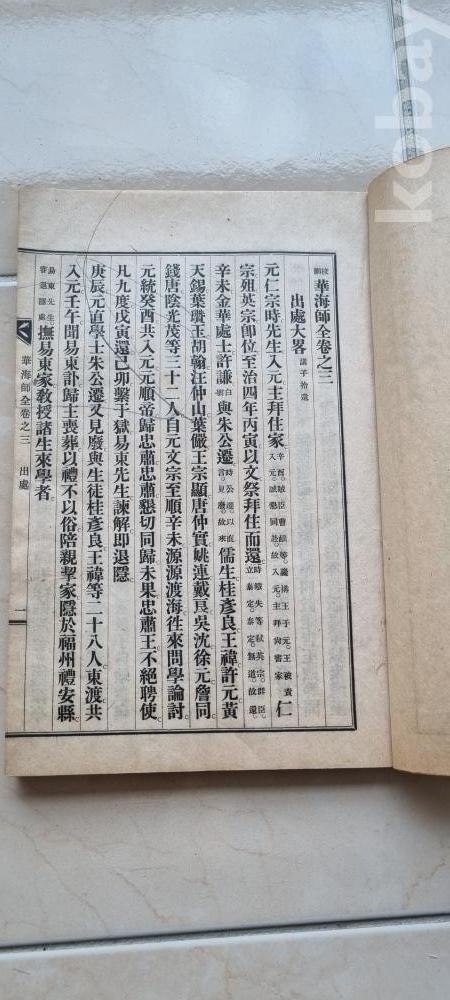 校訂華海師全卷之三
出處大畧 諸子拾遺
元仁宗時先生入元主拜住家 入元誠懇同赴故入元主拜尚書家 仁
宗殂英宗卽位至治四年丙寅以文祭拜住而還 立泰定泰定無道故還
辛未金華處士許謙 與朱公遷 儒生桂彥良王禕許元黃
天錫葉瓚玉胡翰汪仲山葉儼王宗顯唐仲實姚連戴良吳沈徐元詹同
錢唐陰光茂等三十二人自元文宗至順辛未源源渡海徃來問學論討
元統癸酉共入元元順帝歸忠肅忠肅懇切同歸未果忠肅王不絕聘使
凡九度戊寅還己卯繫于獄易東先生諫解即退隱
庚辰元直學士朱公遷又見廢與生徒桂彥良王禕等二十八人東渡共
入元壬午聞易東訃歸主喪葬以禮不以俗陪親挈家隱於福州禮安縣
易東先生舊退隱處 撫易東家敎授諸生來學者
華海師全卷之三 出處 一
kobay